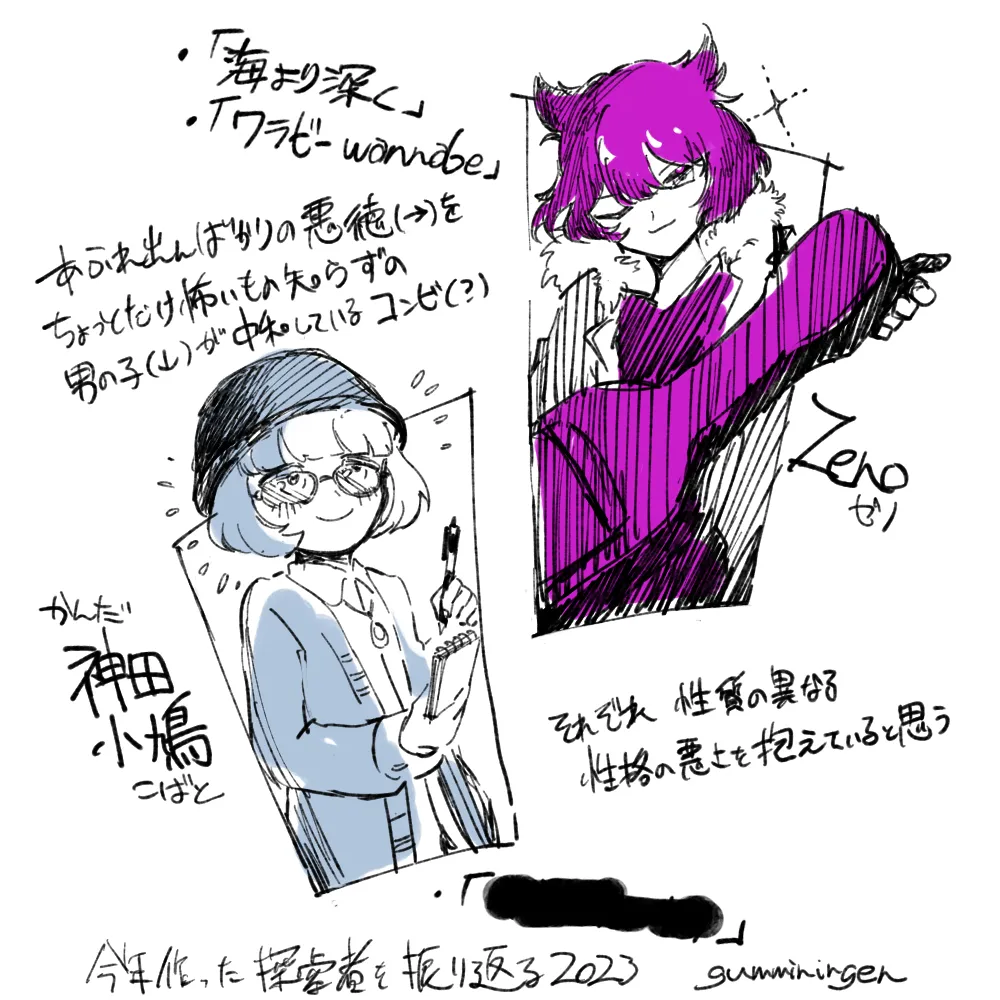 ・「海より深く」
・「ワラビー wannabe」
あふれ出んばかりの悪徳(→)を
ちょっとだけ怖いもの知らずの
男の子(↓)が中和しているコンビ(?)
Zeno
ゼノ
かんだ
神田
小鳩
こばと
それぞれ 性質の異なる
性格の悪さを抱えていると思う
・「
」
今年作った探索者を振り返る2023
gumminingen